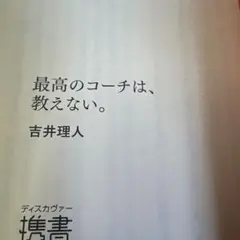 最高のコーチは、
教えない。
吉井理人
ディスカヴァー
携書